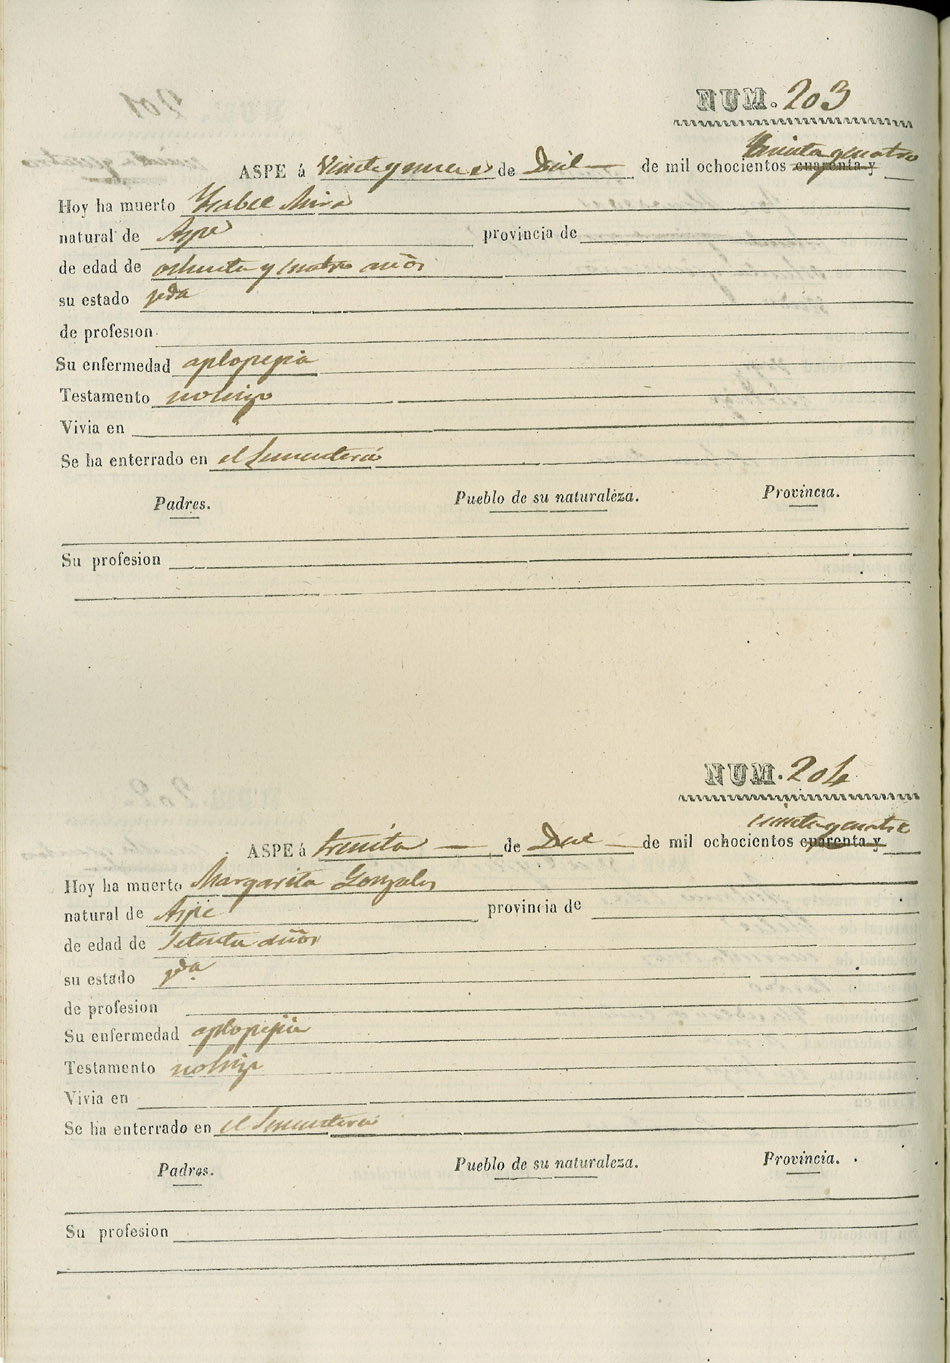 NUM. 203
ASPE á Veinte y nueve de Dice de mil ochocientos cuarenta y cincuenta y cuatro
Hoy ha muerto Ysabel Mira
natural de Aspe provincia de
de edad de ochenta y cuatro años
su estado vda
de profesion
Su enfermedad aplopegia
Testamento no hizo
Vivia en
Se ha enterrado en el Sementerio
Padres. Pueblo de su naturaleza. Provincia.
Su profesion
NUM. 204
ASPE á treinta de Dice de mil ochocientos cuarenta y cincuenta y cuatro
Hoy ha muerto Margarita Gonzales
natural de Aspe provincia de
de edad de Setenta años
su estado vda
de profesion
Su enfermedad aplopegia
Testamento no hizo
Vivia en
Se ha enterrado en el Sementerio
Padres. Pueblo de su naturaleza. Provincia.
Su profesion